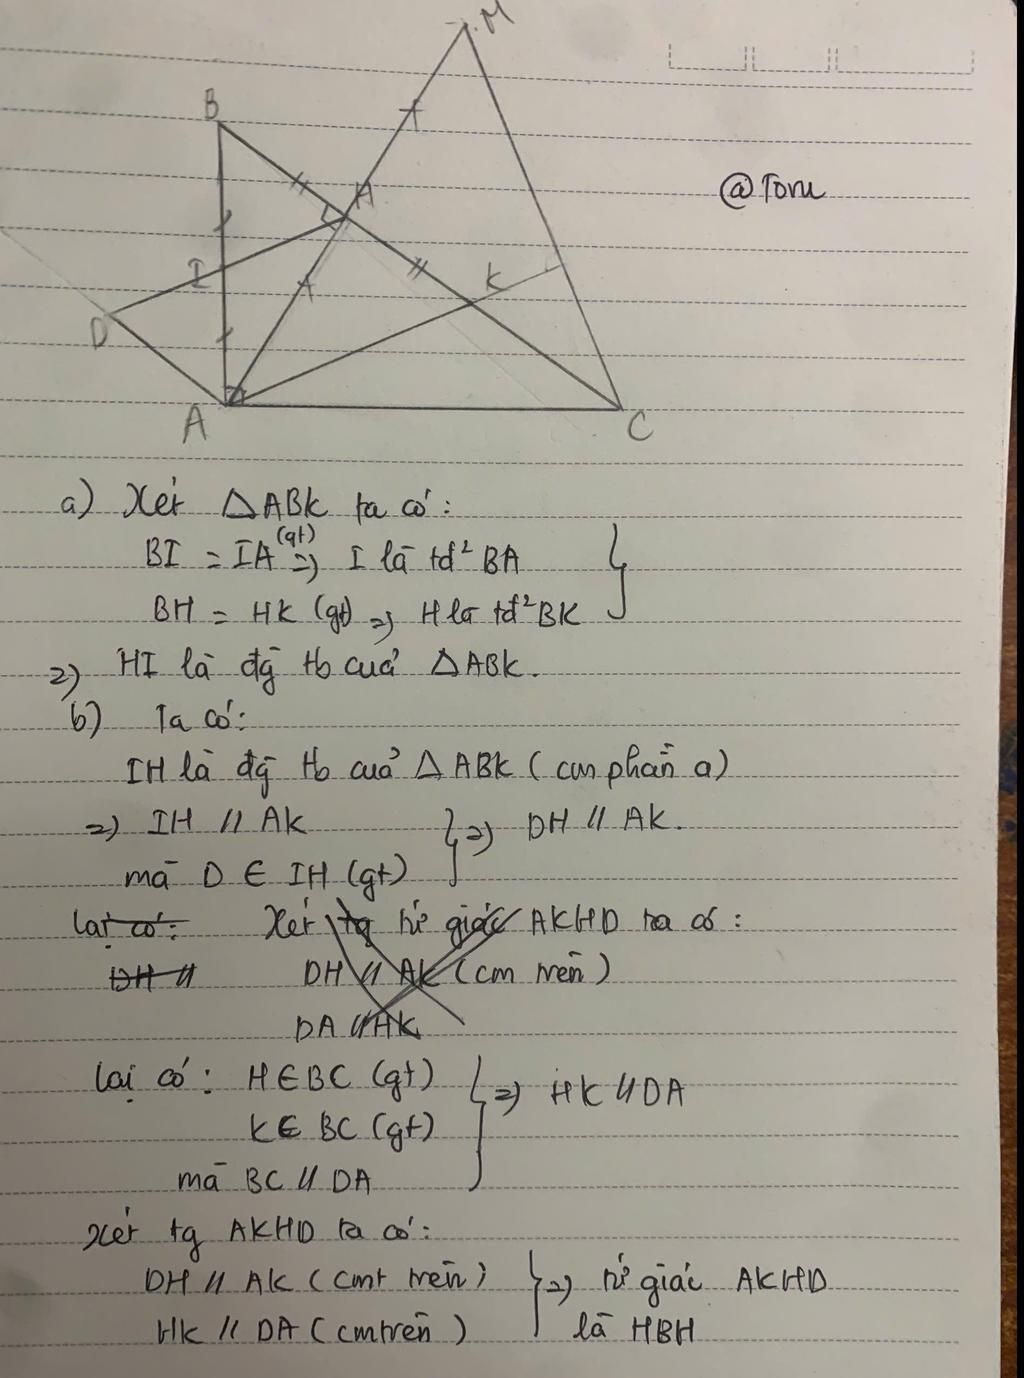 M
B
H
@Toru
I
K
D
A
C
a) Xét △ABK ta có:
BI = IA (gt) => I là tđ² BA
BH = HK (gt) => H là tđ² BK
=> HI là đg tb của △ABK.
b) Ta có:
IH là đg tb của △ABK (cm phần a)
=> IH // AK
=> DH // AK.
mà D ∈ IH (gt)
lại có: Xét tg tứ giác AKHD ta có:
DH // DH // AK (cm trên)
DA // HK
lại có: H∈BC (gt)
=> HK // DA
K∈ BC (gt)
mà BC // DA
Xét tg AKHD ta có:
DH // AK (cmt trên) => tứ giác AKHD
HK // DA (cmtrên) là HBH